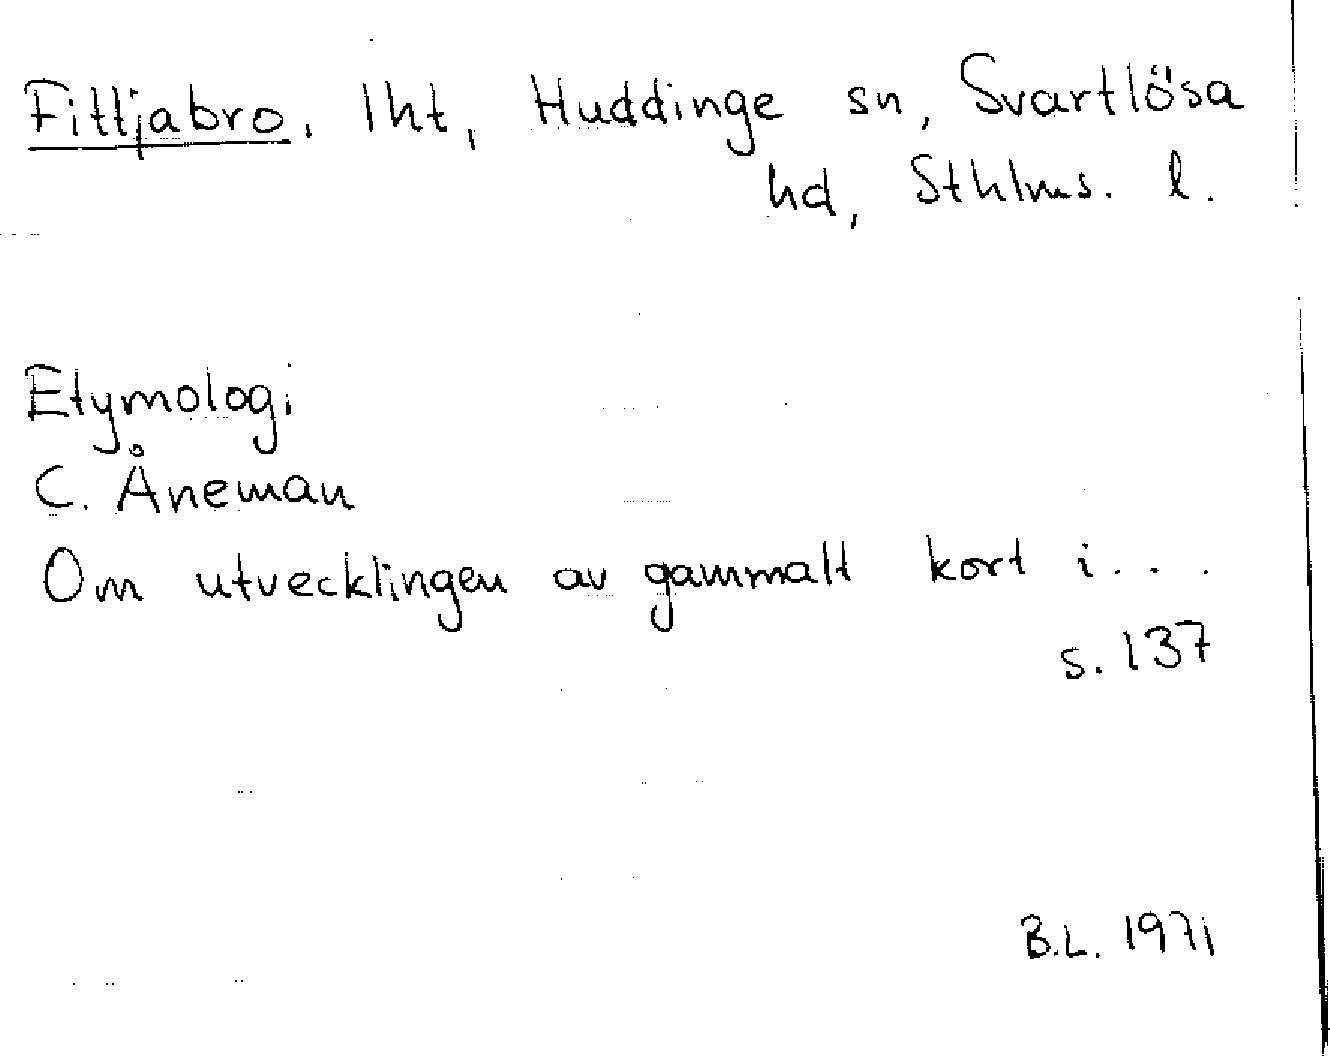 Fittjabro, lht, Huddinge sn, Svartlösa
hd, Sthlms. l.
Etymologi
C. Åneman
Om utvecklingen av gammalt kort i...
s. 137
B.L. 1971